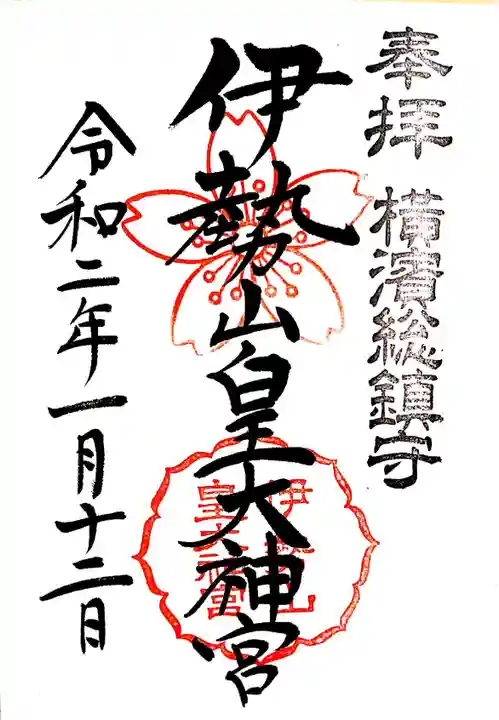 奉拝 横濱総鎮守
伊勢山皇大神宮
伊勢山
皇大神宮
令和二年一月十二日